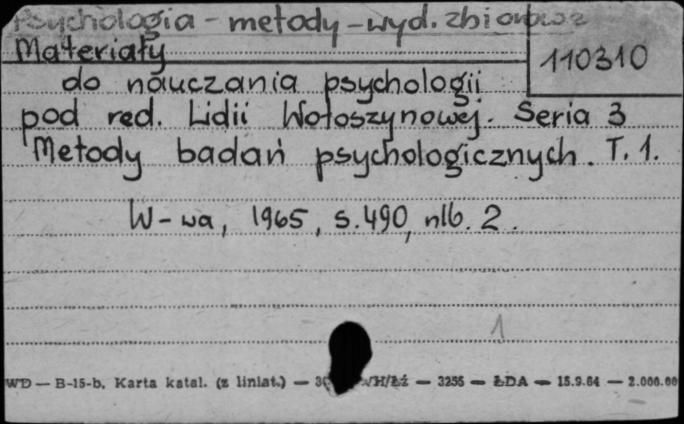 Psychologia - metody - wyd. zbiorowe
Materiały
110310
do nauczania psychologii
pod red. Lidii Wołoszynowej. Seria 3
Metody badań psychologicznych. T. 1.
W-wa, 1965, s. 490, nlb. 2.
1
WD — B-15-b. Karta katal. (z liniat.) — /H/Łź — 3255 — ŁDA — 15.9.64 — 2.000.00